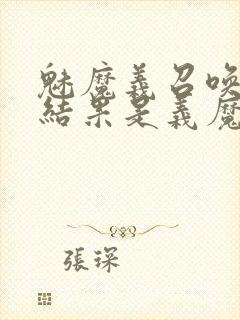 魅魔義召喚
結果是義魔
張琛